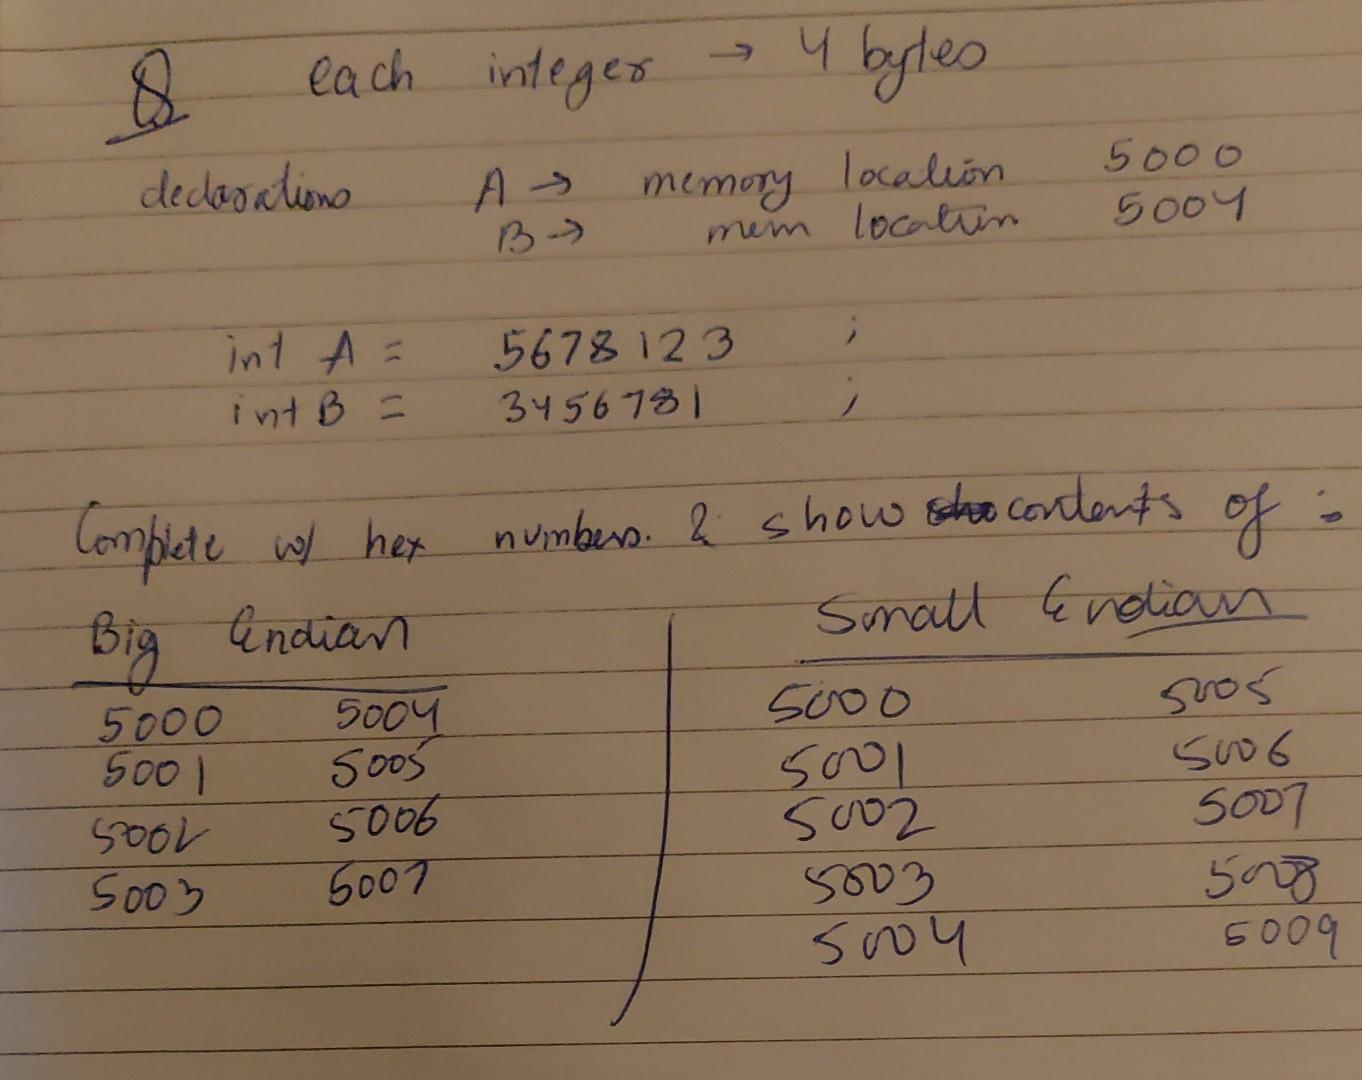 Q each integer → 4 bytes
declarations A → memory location 5000
B → mem location 5004
int A = 5678123 ;
int B = 3456781 ;
Complete w/ hex numbers. & show contents of :
Big Endian
5000 5004
5001 5005
5002 5006
5003 5007
Small Endian
5000 5005
5001 5006
5002 5007
5003 5008
5004 5009